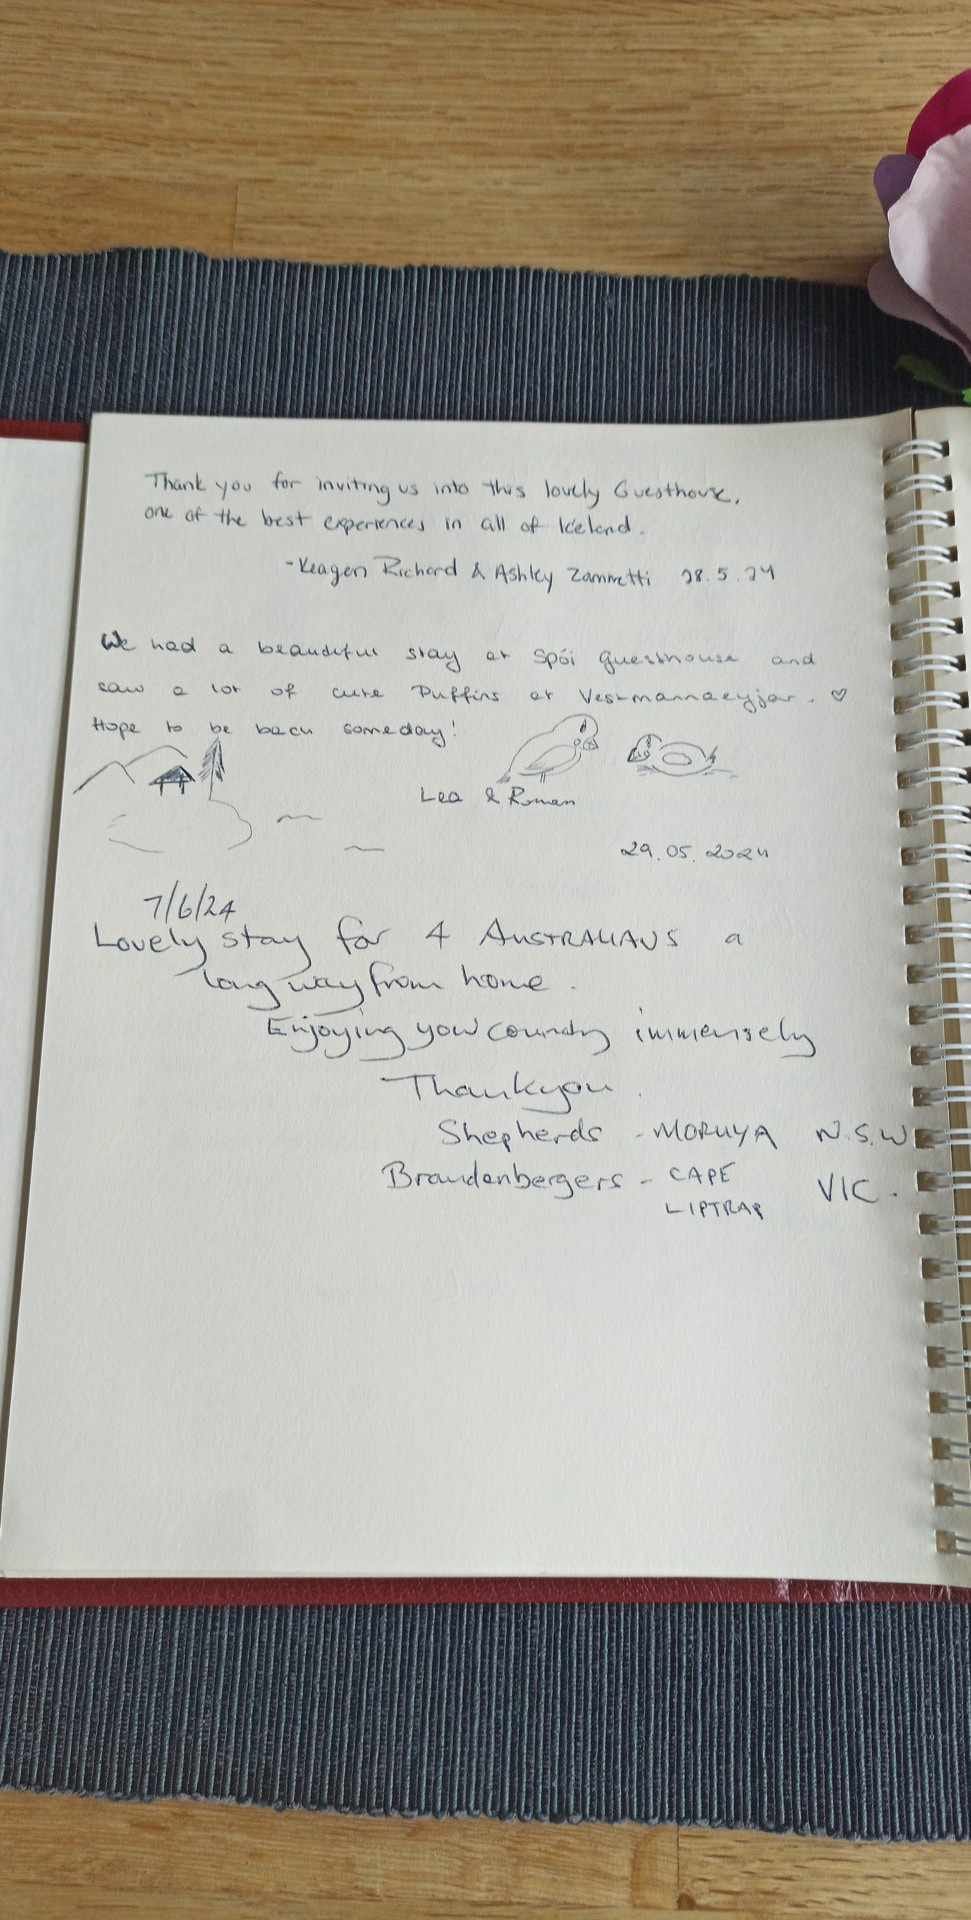 Thank you for inviting us into this lovely Guesthouse,
one of the best experiences in all of Iceland.
- Keagen Richard & Ashley Zammetti 28.5.24
We had a beautiful stay at Spói guesthouse and
saw a lot of cute Puffins at Vestmannaeyjar. ♡
Hope to be back someday!
Lea & Roman
29.05.2024
7/6/24
Lovely stay for 4 AUSTRALIANS a
long way from home.
Enjoying your country immensely
Thankyou.
Shepherds - MORUYA N.S.W
Brandenbergers - CAPE
LIPTRAP VIC.